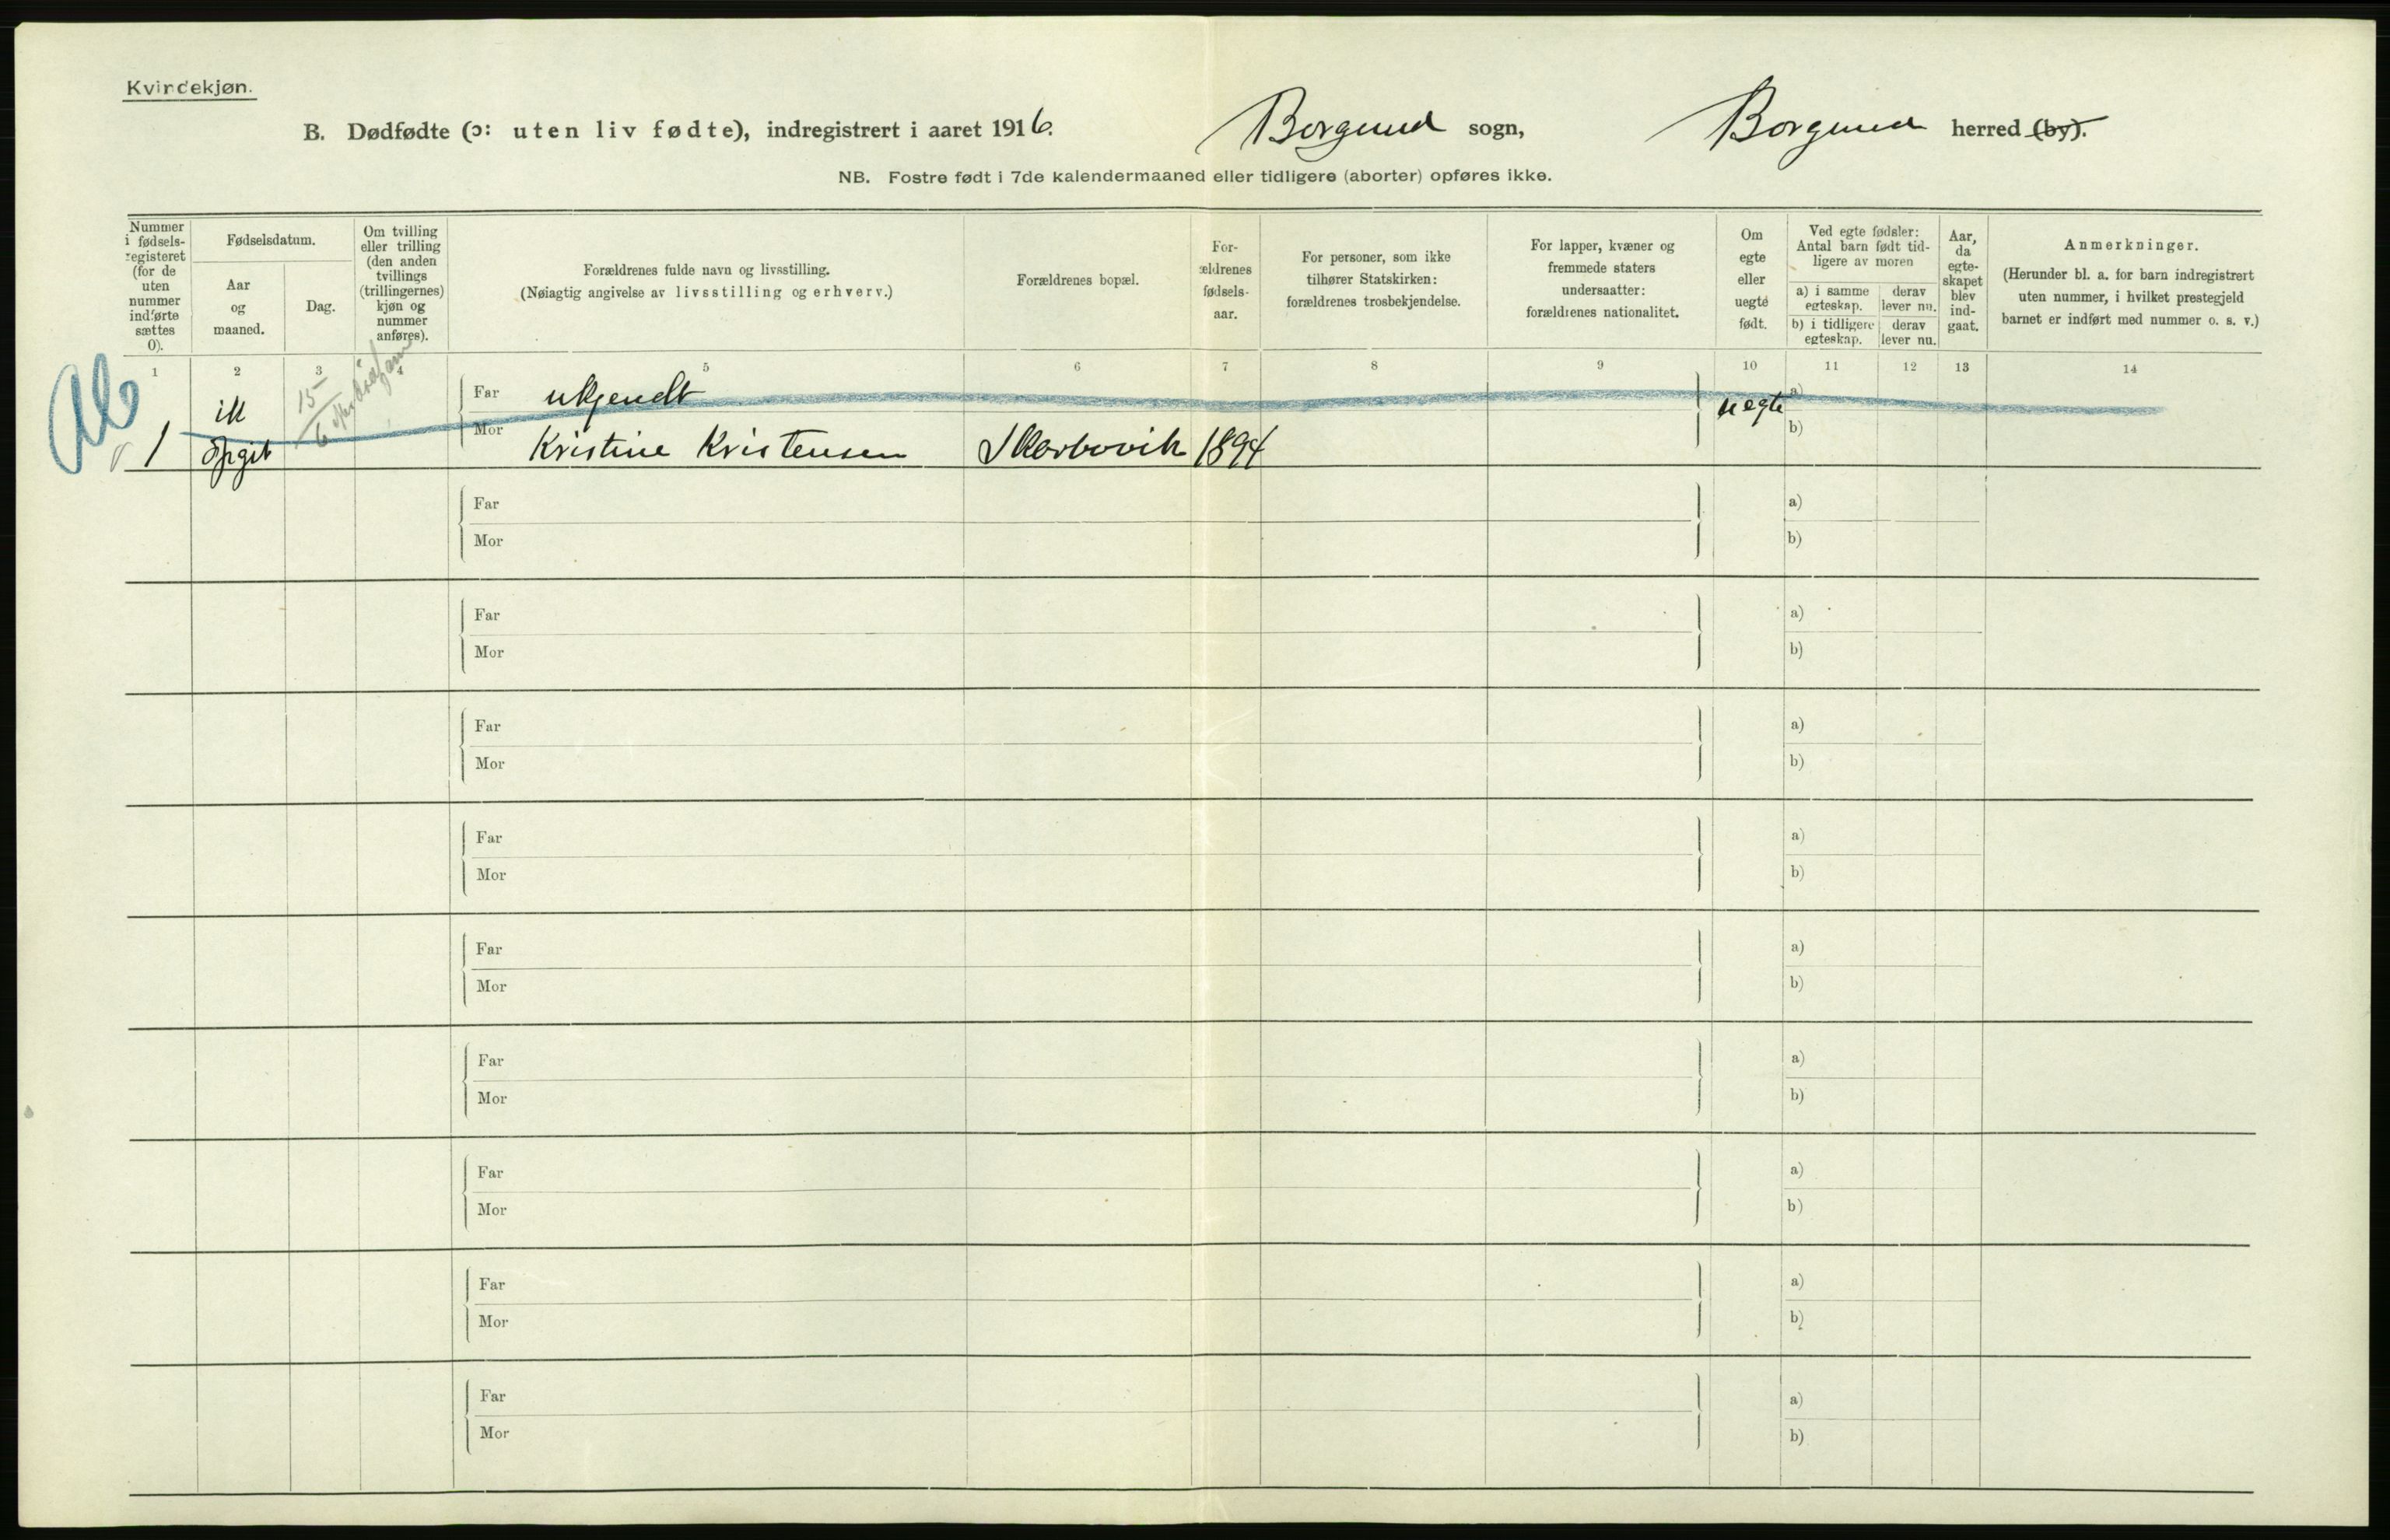 Kvindekjøn.
B. Dødfødte (ɔ: uten liv fødte), indregistrert i aaret 1916. Borgund sogn, Borgund herred (by).
NB. Fostre født i 7de kalendermaaned eller tidligere (aborter) opføres ikke.
Nummer i fødselsregisteret (for de uten nummer indførte sættes 0).
Fødselsdatum.
Aar og maaned.
Dag.
Om tvilling eller trilling (den anden tvillings (trillingernes) kjøn og nummer anføres).
Forældrenes fulde navn og livsstilling.
(Nøiagtig angivelse av livsstilling og erhverv.)
Forældrenes bopæl.
Forældrenes fødselsaar.
For personer, som ikke tilhører Statskirken: forældrenes trosbekjendelse.
For lapper, kvæner og fremmede staters undersaatter: forældrenes nationalitet.
Om egte eller uegte født.
Ved egte fødsler: Antal barn født tidligere av moren
a) i samme egteskap. derav lever nu.
b) i tidligere egteskap. derav lever nu.
Aar, da egteskapet blev indgaat.
Anmerkninger.
(Herunder bl. a. for barn indregistrert uten nummer, i hvilket prestegjeld barnet er indført med nummer o. s. v.)
1 2 3 4 5 6 7 8 9 10 11 12 13 14
Ab
15/6
1 ik opgit
Far ukjendt uegte a)
Mor Kristine Kristensen Skarbøvik 1894 b)
Far a)
Mor b)
Far a)
Mor b)
Far a)
Mor b)
Far a)
Mor b)
Far a)
Mor b)
Far a)
Mor b)
Far a)
Mor b)
Far a)
Mor b)
Far a)
Mor b)